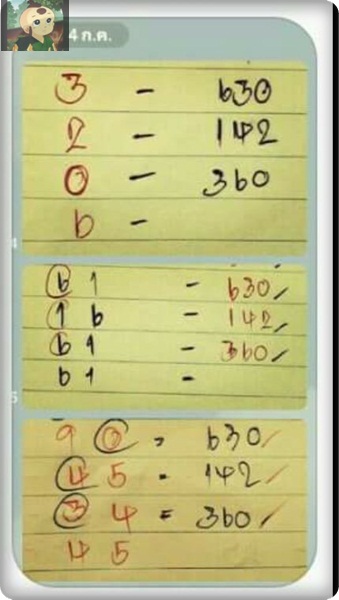 4 ก.ค.
3 - 630
2 - 142
0 - 360
6 -
61 - 630
16 - 142
61 - 360
61 -
90 = 630
45 - 142
34 = 360
45